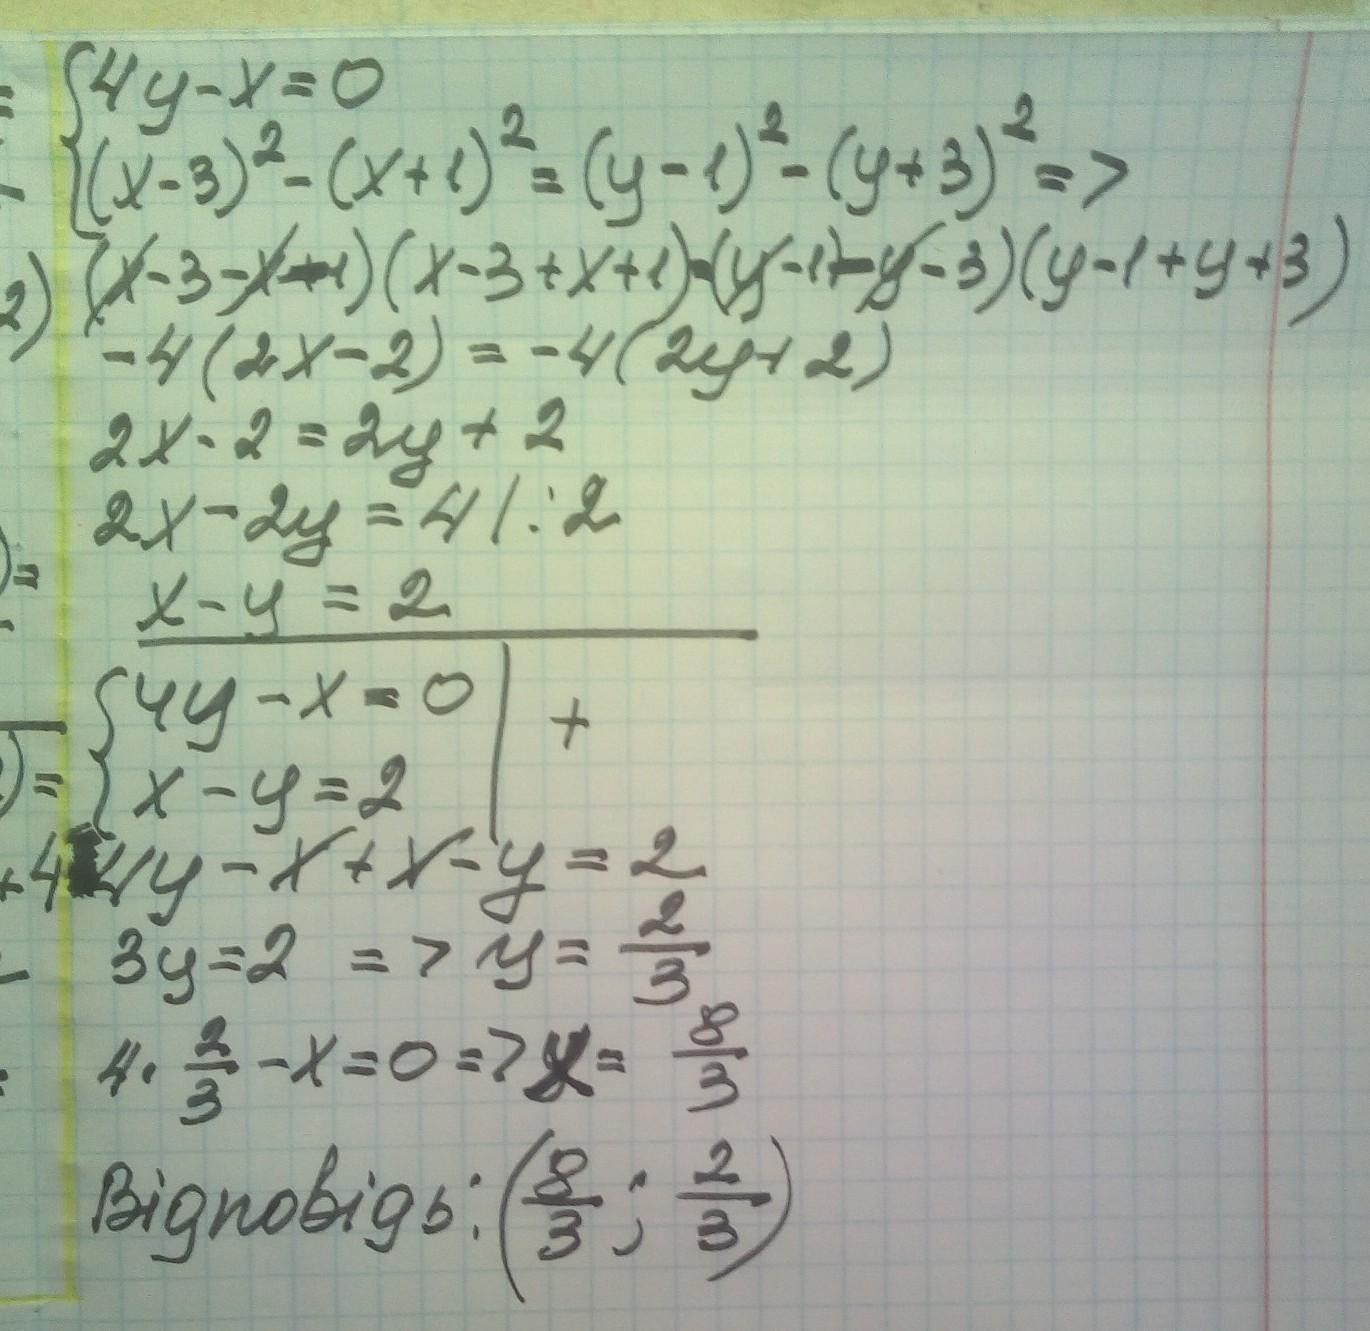 {4y-x=0
(x-3)²-(x+1)²=(y-1)²-(y+3)² =>
(x-3-x-1)(x-3+x+1)=(y-1-y-3)(y-1+y+3)
-4(2x-2)=-4(2y+2)
2x-2=2y+2
2x-2y=4 |:2
x-y=2
{4y-x=0 | +
x-y=2
4y-x+x-y=2
3y=2 => y=2/3
4·2/3-x=0 => x=8/3
Відповідь: (8/3; 2/3)